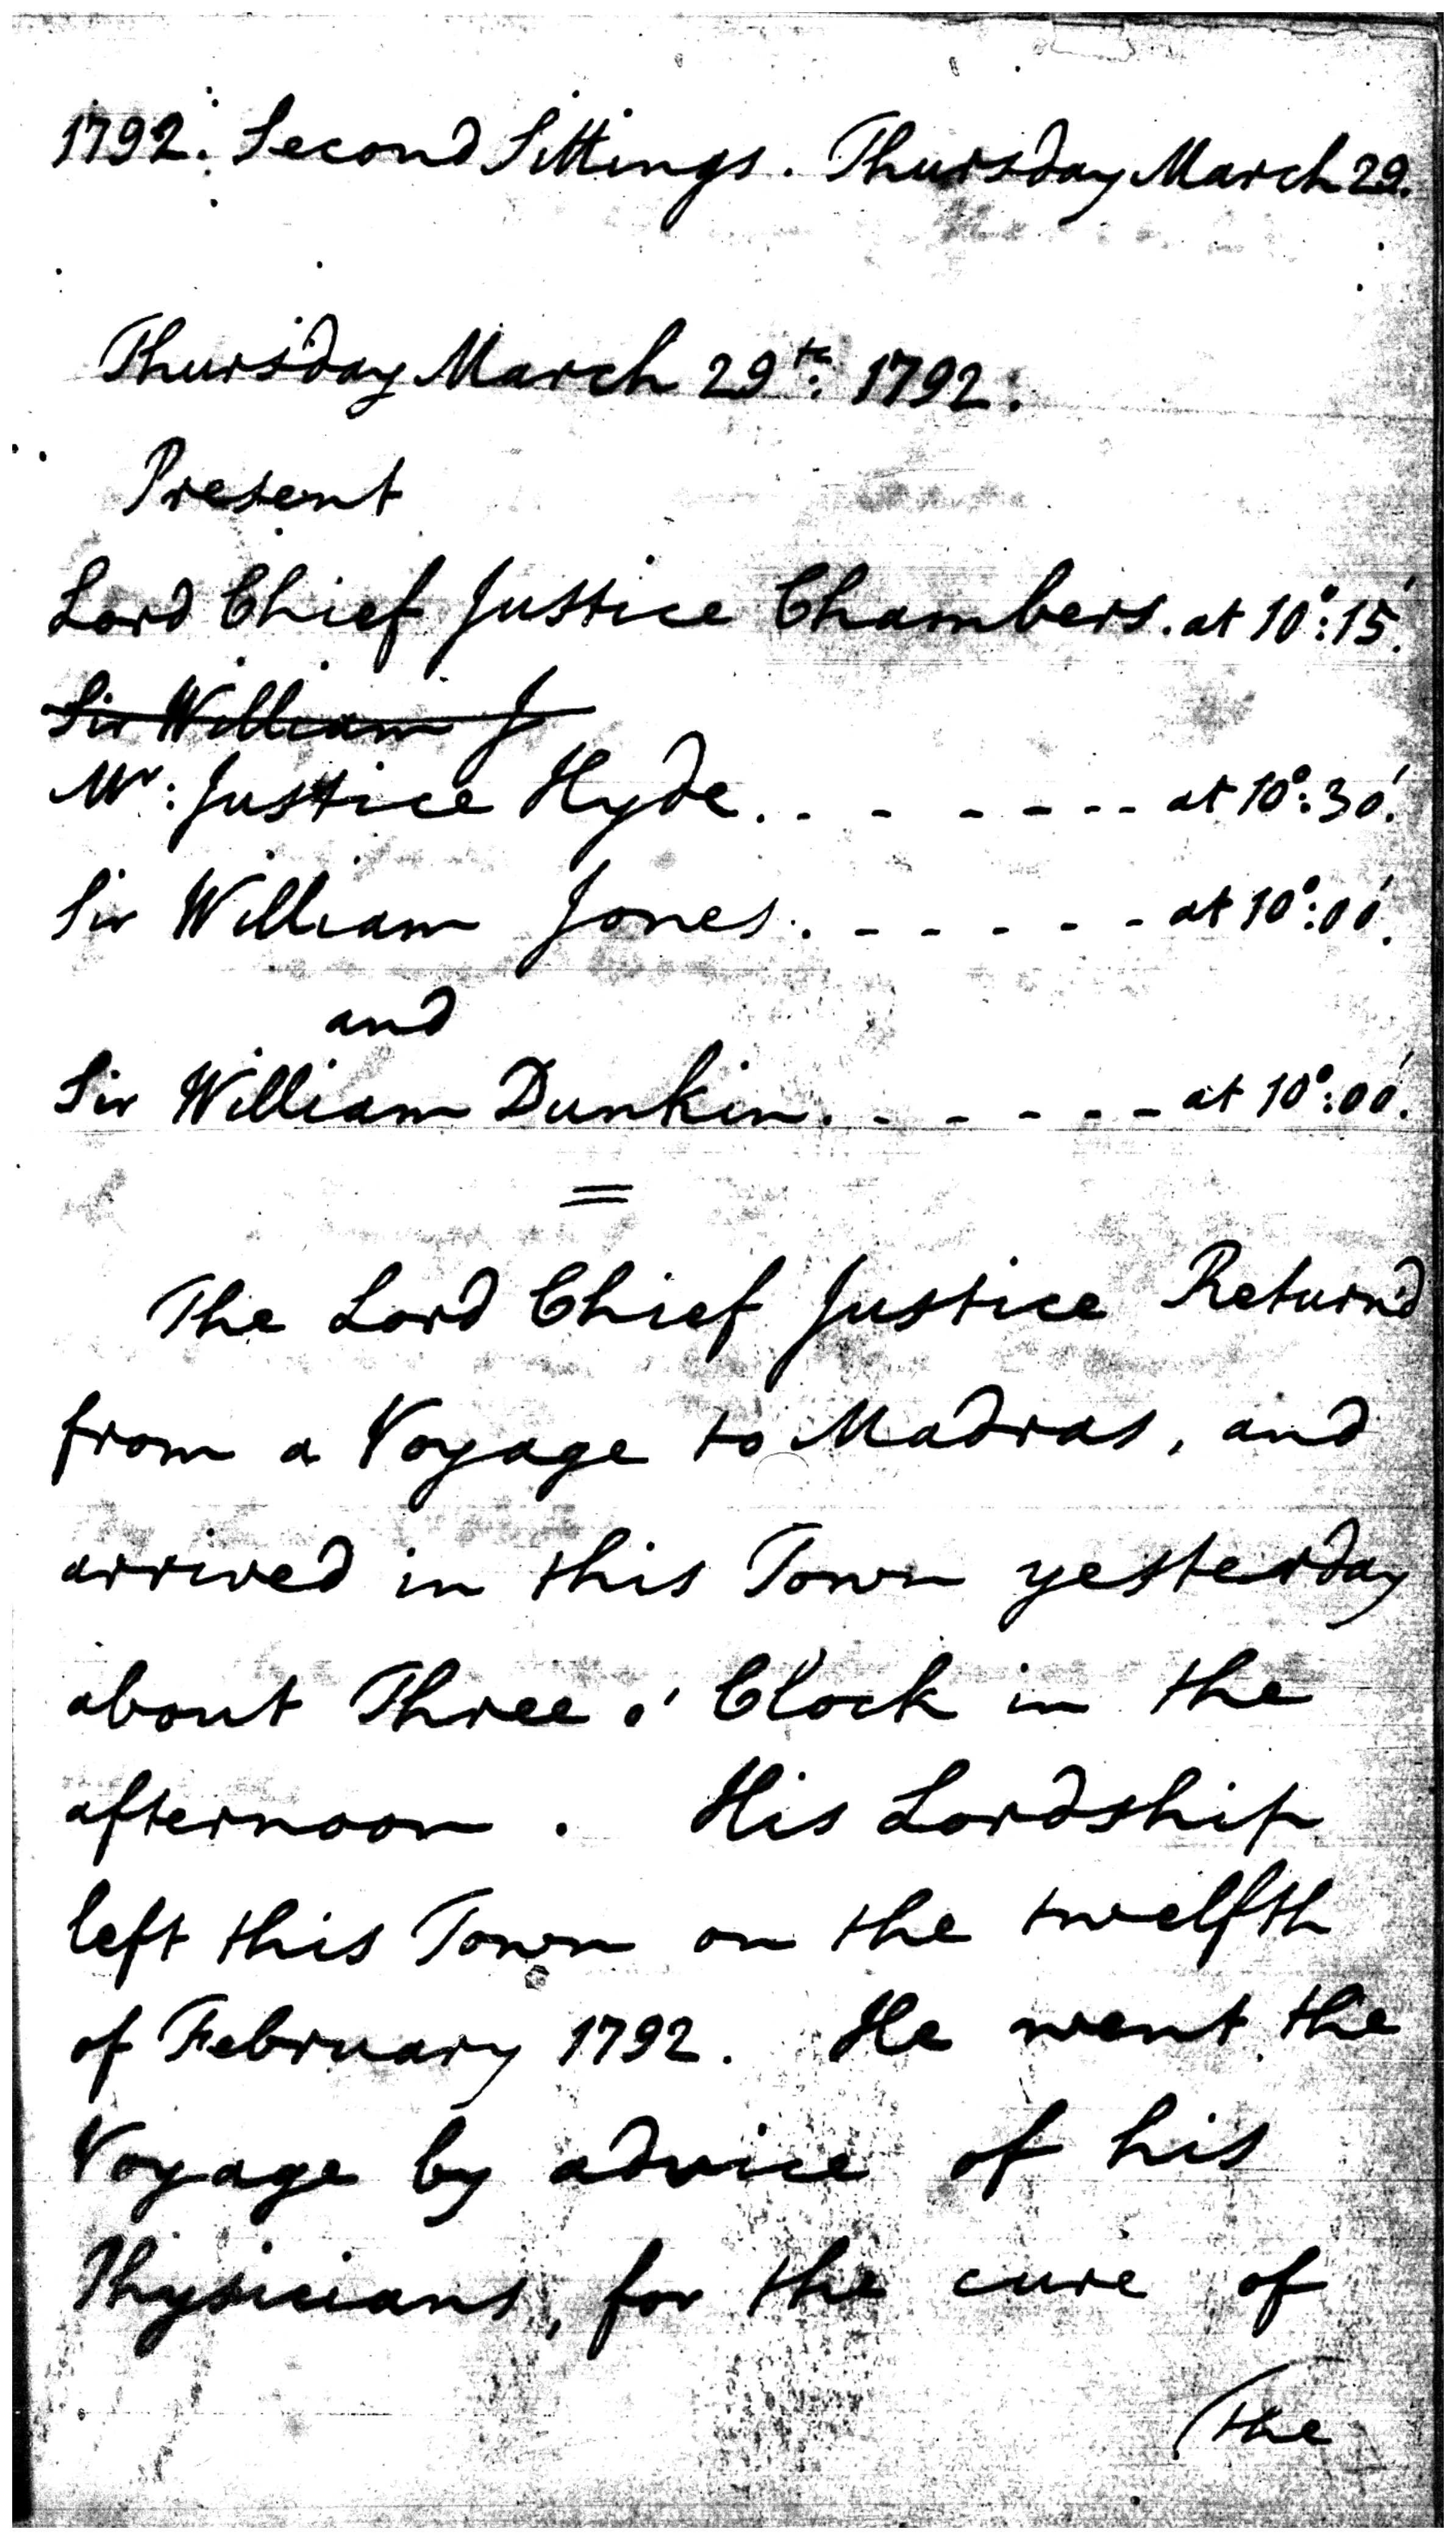 1792. Second Sittings. Thursday March 29.
Thursday March 29th: 1792.
Present
Lord Chief Justice Chambers. at 10°:15'.
Sir William J
Mr: Justice Hyde. - - - - - - at 10°:30'.
Sir William Jones. - - - - - - at 10°:00'.
and
Sir William Dunkin. - - - - - at 10°:00'.
=
The Lord Chief Justice Return'd
from a Voyage to Madras, and
arrived in this Town yesterday
about Three o' Clock in the
afternoon. His Lordship
left this Town on the twelfth
of February 1792. He went the
Voyage by advice of his
Physicians, for the cure of
(the